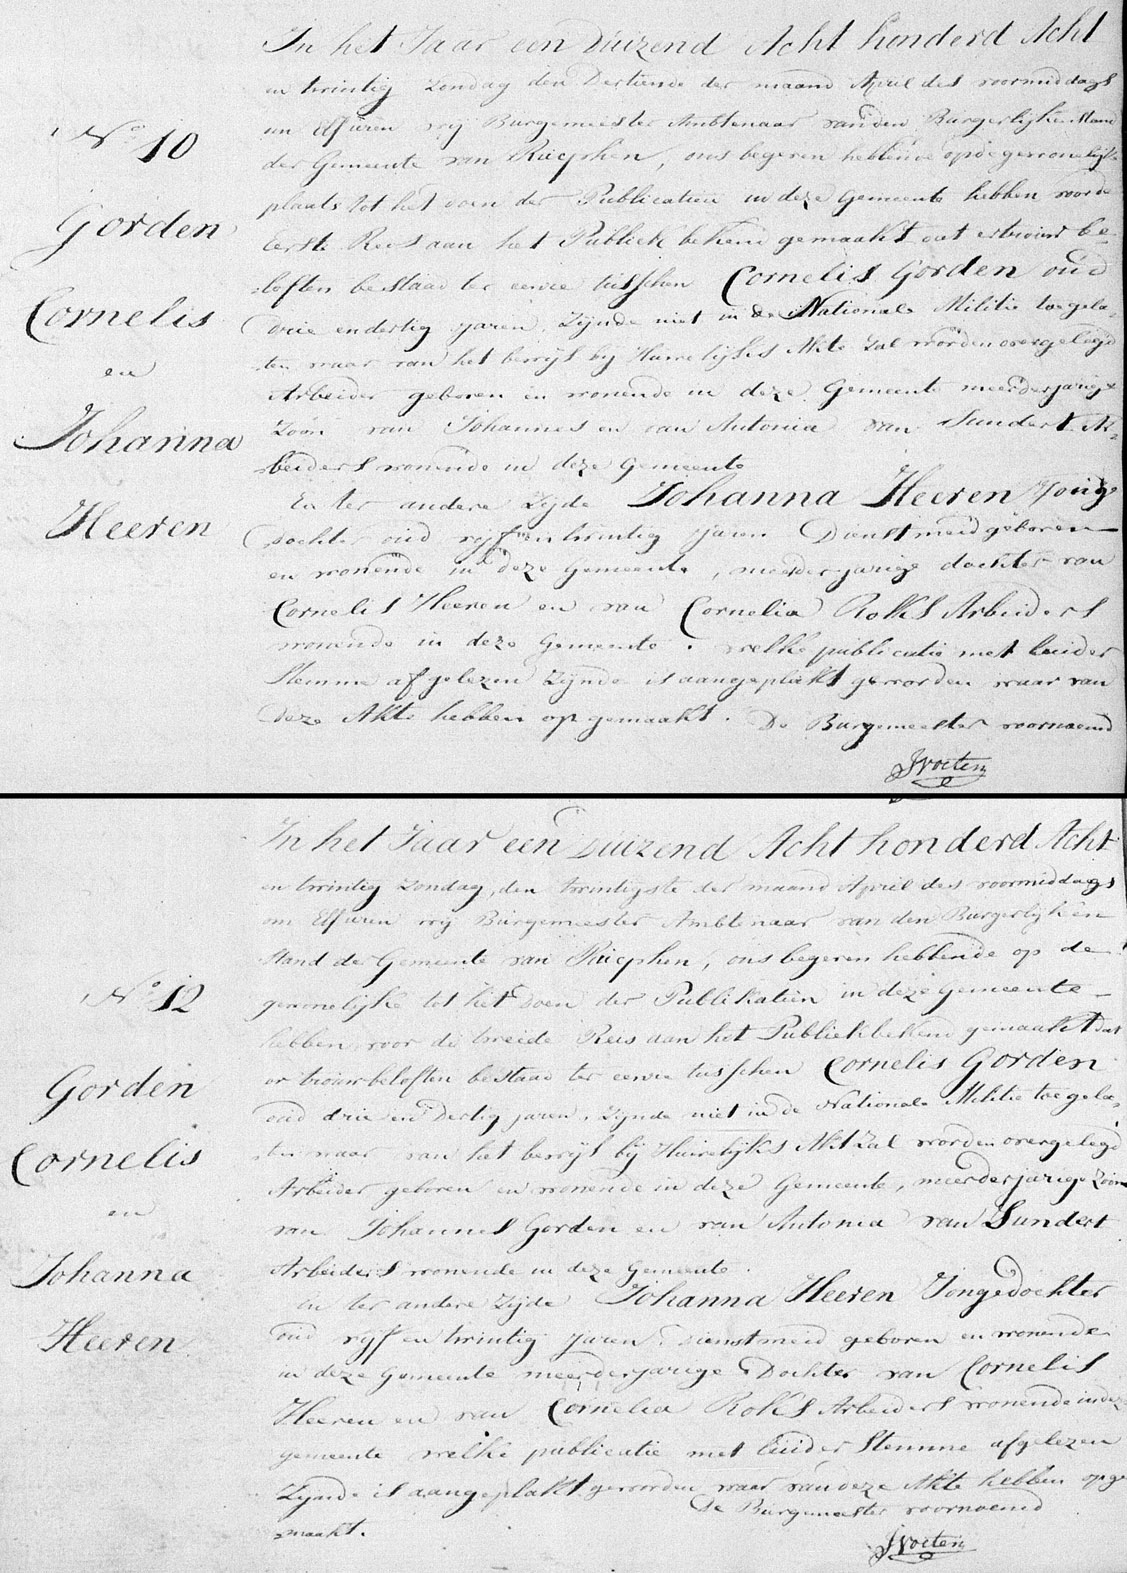 In het Jaar een Duizend Acht honderd Acht
en twintig Zondag den Dertiende der maand April des voormiddags
om Elf uren wij Burgemeester Ambtenaar van den Burgerlijken Stand
der Gemeente van Rucphen, ons begeven hebbende op de gewoonelijke
plaats tot het doen der Publicatien in deze Gemeente hebben voor de
Eerste Reis aan het Publiek bekend gemaakt dat er trouw be-
loften bestaan ter eenre tusschen Cornelis Gorden oud
drie en dertig Jaren, Zijnde niet in de Nationale Militie toegela-
ten waar van het bewijs bij Huwelijks Akte zal worden overgelegd
Arbeider geboren en wonende in deze Gemeente meerderjarige
Zoon van Johannes en van Antonia van Sundert Ar-
beiders wonende in deze Gemeente
En ter andere Zijde Johanna Heeren Jong
dochter oud vijf en twintig Jaren Dienstmeid geboren
en wonende in deze Gemeente, meerderjarige dochter van
Cornelis Heeren en van Cornelia Roks Arbeiders
wonende in deze Gemeente. welke publicatie met luider
Stemme afgelezen Zijnde is aangeplakt geworden waar van
deze Akte hebben op gemaakt. De Burgemeester voornoemd
JVoeten
No 10
Gorden
Cornelis
en
Johanna
Heeren
In het Jaar een Duizend Acht honderd Acht
en twintig Zondag, den twintigste der maand April des voormiddags
om Elf uren wij Burgemeester Ambtenaar van den Burgerlijken
Stand der Gemeente van Rucphen, ons begeven hebbende op de
gewonelijke tot het doen der Publikatien in deze Gemeente
hebben voor de tweede Reis aan het Publiek bekend gemaakt dat
er trouw beloften bestaan ter eenre tusschen Cornelis Gorden
oud drie en Dertig jaren, Zijnde niet in de Nationale Militie toegela-
ten waar van het bewijs bij Huwelijks Akt zal worden overgelegd
Arbeider geboren en wonende in deze Gemeente, meerderjarige Zoon
van Johannes Gorden en van Antonia van Sundert
Arbeiders wonende in deze Gemeente.
En ter andere Zijde Johanna Heeren Jongedochter
oud vijf en twintig jaren Dienstmeid geboren en wonende
in deze Gemeente meerderjarige Dochter van Cornelis
Heeren en van Cornelia Roks Arbeiders wonende in deze
gemeente welke publicatie met luider Stemme afgelezen
Zijnde is aangeplakt geworden waar van deze Akte hebben opge
maakt. De Burgemeester voornoemd
JVoeten
No 12
Gorden
Cornelis
en
Johanna
Heeren